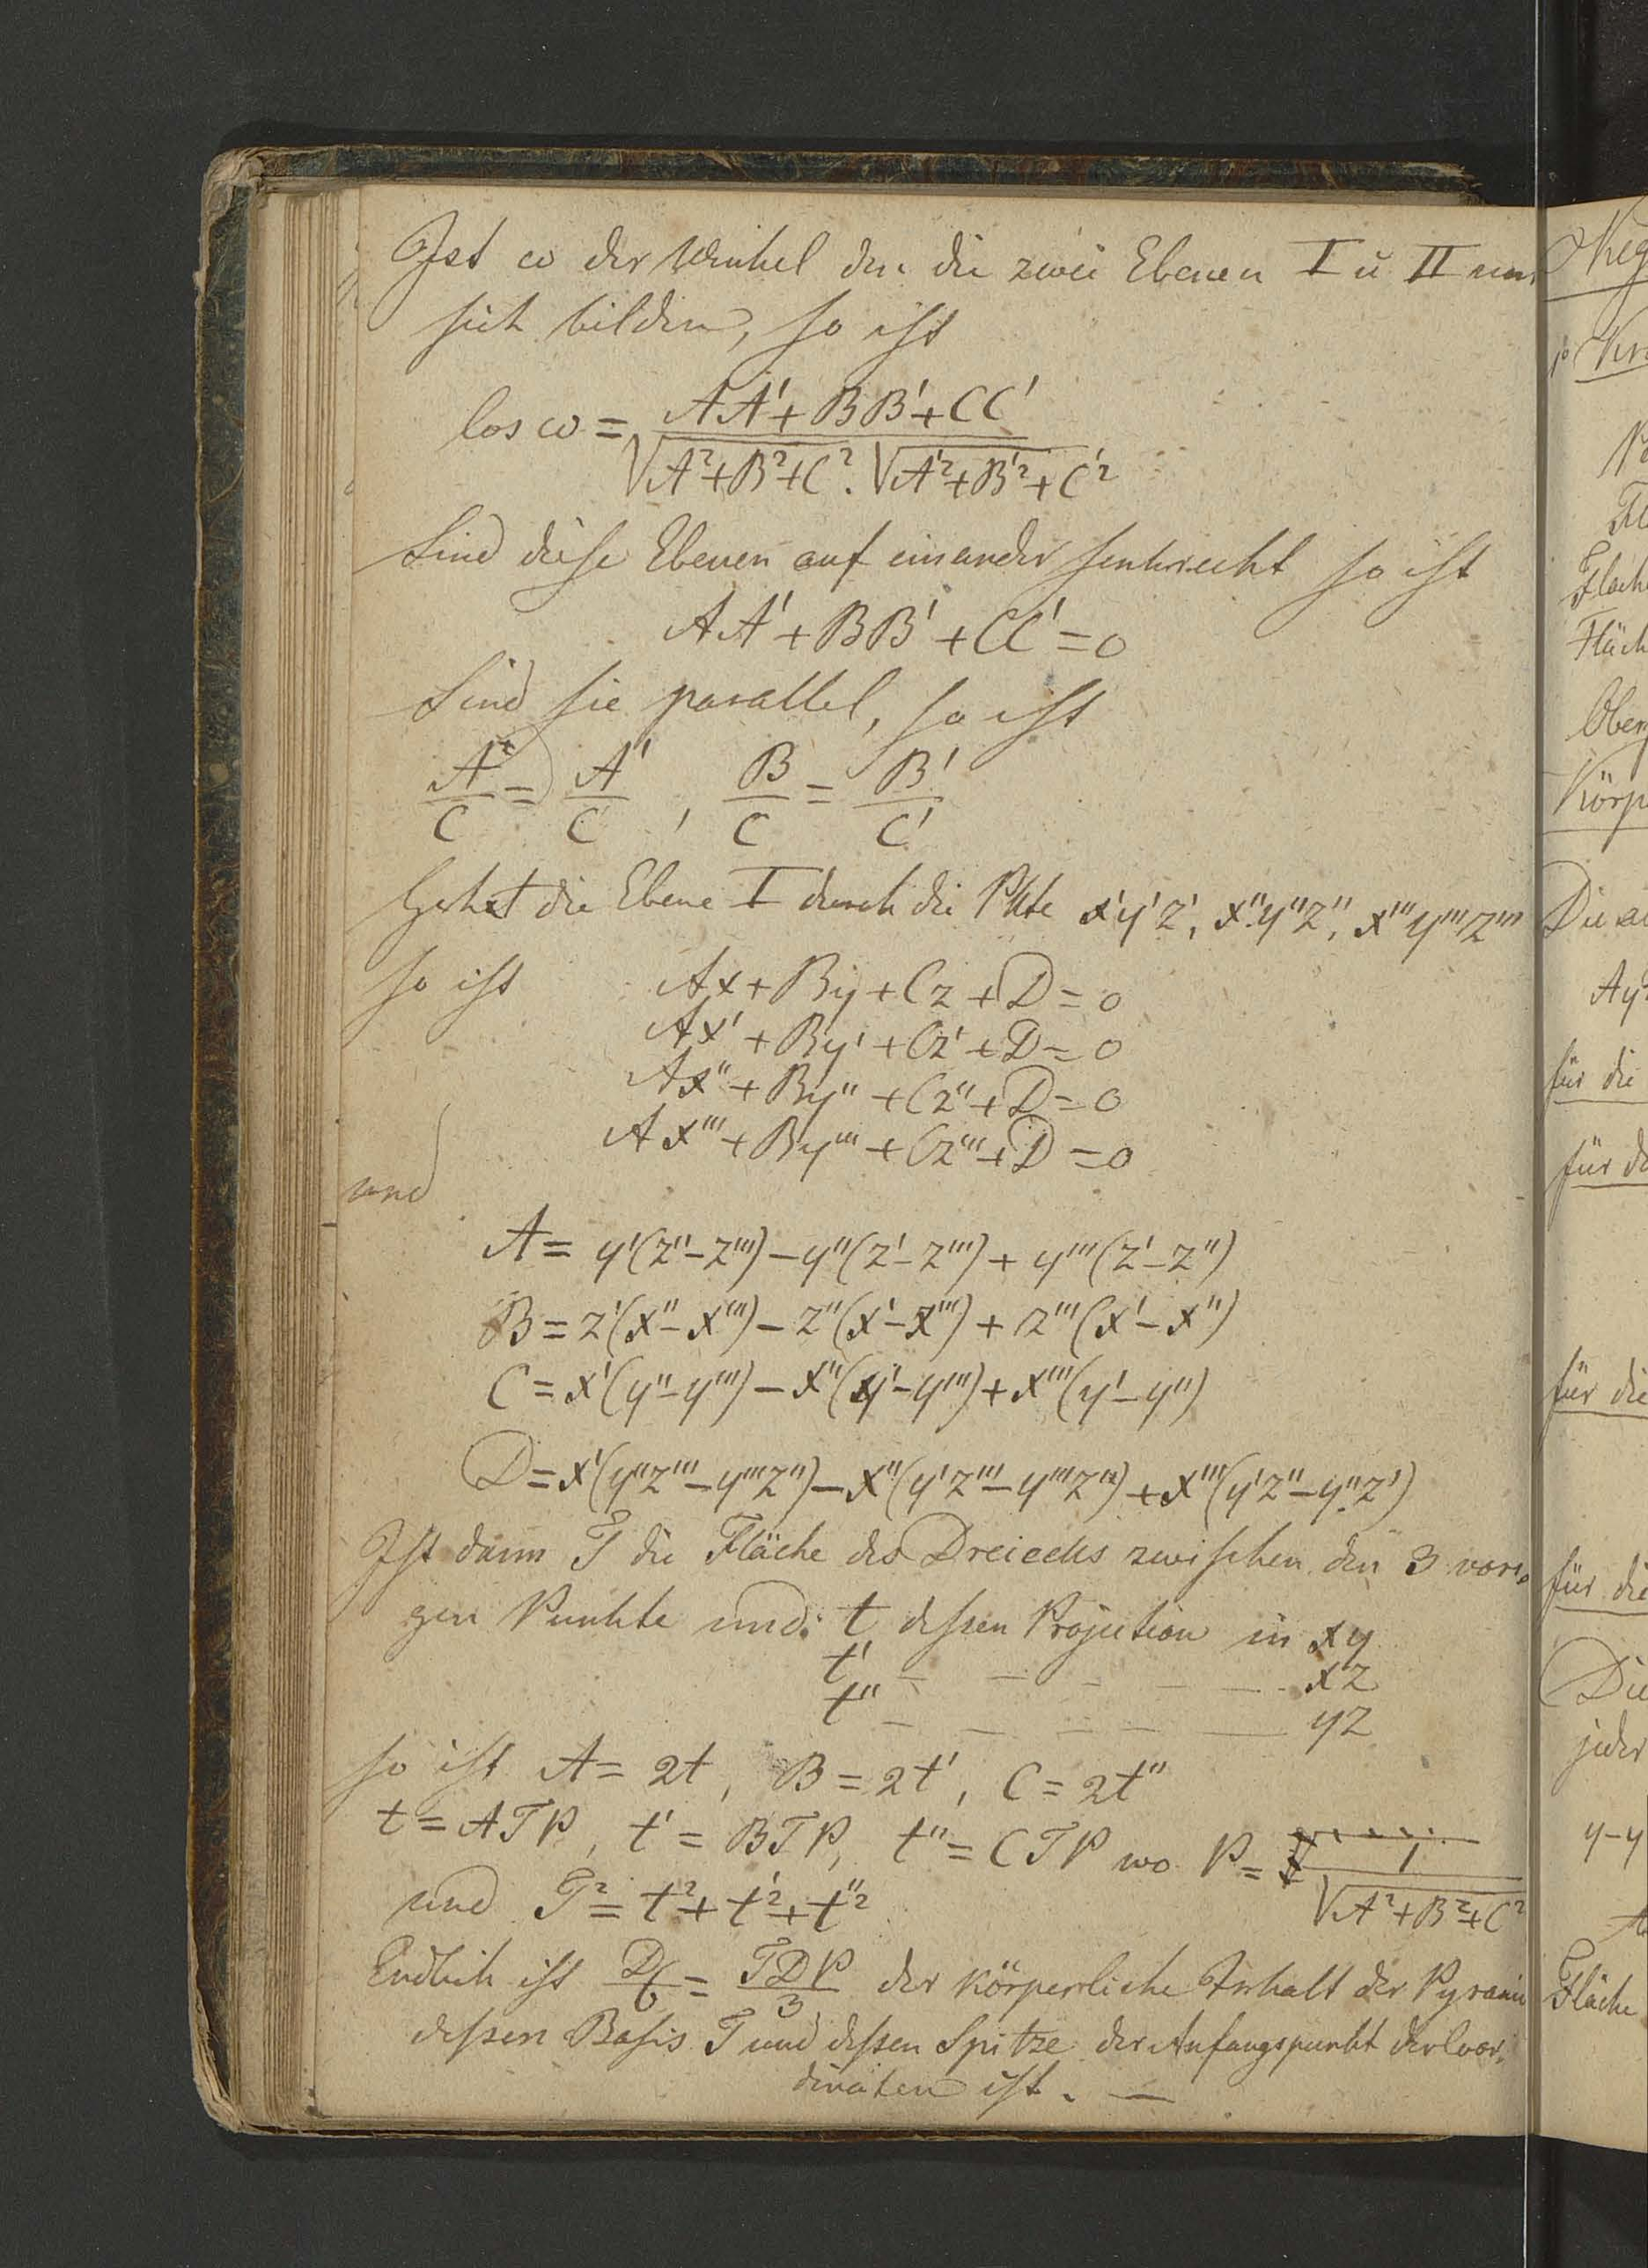 Ist ω der Winkel den die zwei Ebenen I u II um
sich bilden, so ist
Cos ω = AA' + BB' + CC' / √A²+B²+C² . √A'²+B'²+C'²
Sind diese Ebenen auf einander senkrecht so ist
AA' + BB' + CC' = 0
Sind sie parallel, so ist
A/C = A'/C' , B/C = B'/C'
Gehet die Ebene I durch die Pkte x'y'z', x''y''z'', x'''y'''z'''
so ist Ax + By + Cz + D = 0
Ax' + By' + Cz' + D = 0
Ax'' + By'' + Cz'' + D = 0
Ax''' + By''' + Cz''' + D = 0
und
A = y'(z''-z''') - y''(z'-z''') + y'''(z'-z'')
B = z'(x''-x''') - z''(x'-x''') + z'''(x'-x'')
C = x'(y''-y''') - x''(y'-y''') + x'''(y'-y'')
D = x'(y''z'''-y'''z'') - x''(y'z'''-y'''z'') + x'''(y'z''-y''z')
Ist dann T die Fläche des Dreiecks zwischen den 3 vori-
gen Punkte und t dessen Projection in xy
t' – – – – – xz
t'' – – – – – yz
so ist A = 2t, B = 2t', C = 2t''
t = ATP, t' = BTP, t'' = CTP wo P = 1/√A²+B²+C²
und T² = t² + t'² + t''²
Endlich ist D/6 = TDP/3 der körperliche Inhalt der Pyrami
dessen Basis T und dessen Spitze der Anfangspunkt der Coor-
dinaten ist. —
Die
für die
für die
für die
Die
jeder
y-y
Fläche